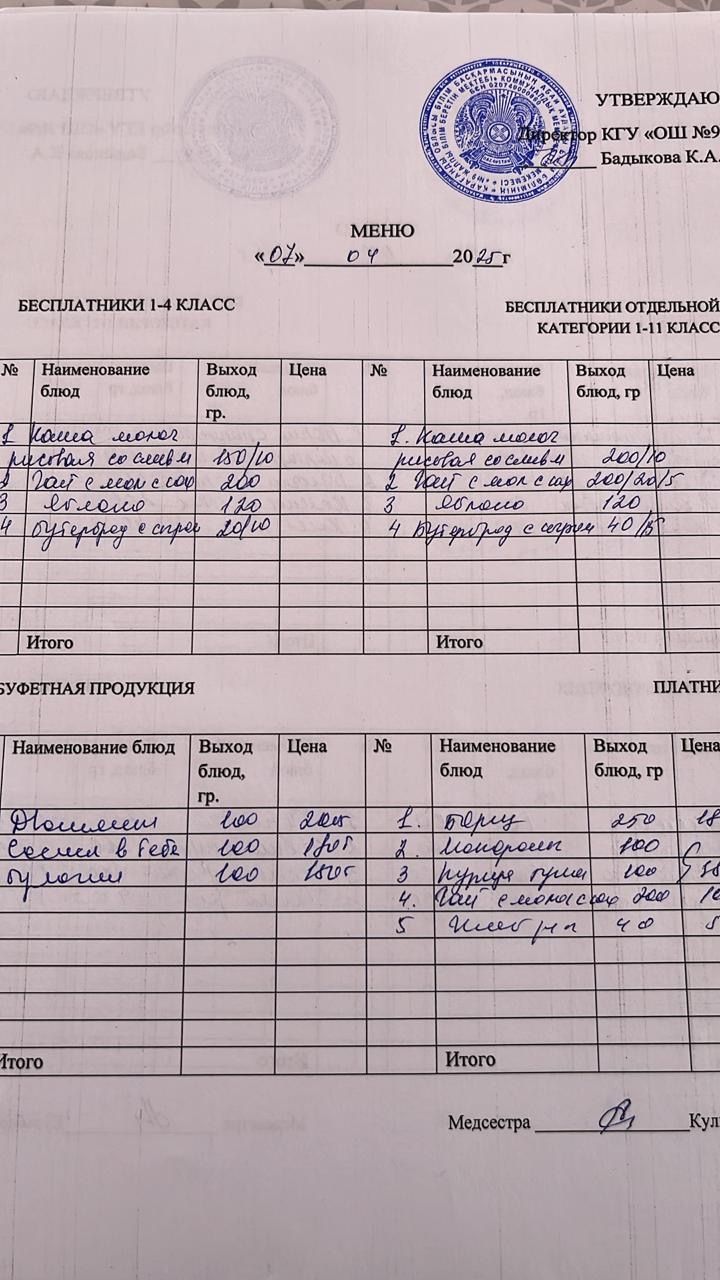 УТВЕРЖДАЮ
Директор КГУ «ОШ №9
Бадыкова К.А.
МЕНЮ
«07» 04 2025г
БЕСПЛАТНИКИ 1-4 КЛАСС
БЕСПЛАТНИКИ ОТДЕЛЬНОЙ
КАТЕГОРИИ 1-11 КЛАСС
№ Наименование блюд Выход блюд, гр. Цена № Наименование блюд Выход блюд, гр Цена
1 Каша молоч 1. Каша молоч
рисовая со слив м 150/10 рисовая со слив м 200/10
2 Чай с мол с сах 200 2 Чай с мол с сах 200/20/5
3 Яблоко 120 3 Яблоко 120
4 Бутерброд с 20/10 4 Бутерброд с 40/15
Итого Итого
БУФЕТНАЯ ПРОДУКЦИЯ
ПЛАТНИ
Наименование блюд Выход блюд, гр. Цена № Наименование блюд Выход блюд, гр Цена
100 200т 1. Борщ 250
Сосиси в тесте 100 180т 2. Макароны 100
булочки 100 150т 3 Курица туш 100
4. Чай с молоком с сах 200
5 Хлеб 40
Итого Итого
Медсестра Кул